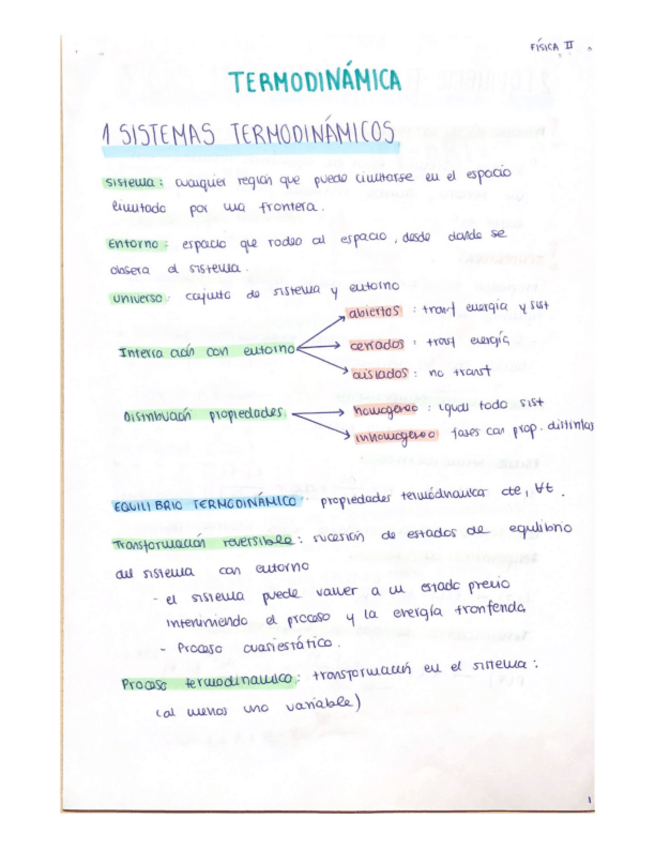 FÍSICA II
TERMODINÁMICA
1 SISTEMAS TERMODINÁMICOS
Sistema: cualquier región que puede limitarse en el espacio
limitado por una frontera.
Entorno: espacio que rodea al espacio, desde donde se
obsera el sistema.
Universo: conjunto de sistema y entorno
abiertos: transf energía y sist
Interracción con entorno
cerrados: transf energía
aislados: no transf
Distribución propiedades
homogéneo: igual todo sist
inhomogéneo fases con prop. distintas
EQUILIBRIO TERMODINÁMICO: propiedades termódinamica cte, ∀t.
Transformación reversible: sucesión de estados de equilibrio
del sistema con entorno
- el sistema puede volver a un estado previo
inteniniendo el proceso y la energía tronfenda
- Proceso cuasiestático.
Proceso termodinamico: transformación en el sistema:
(al menos una variable)
1